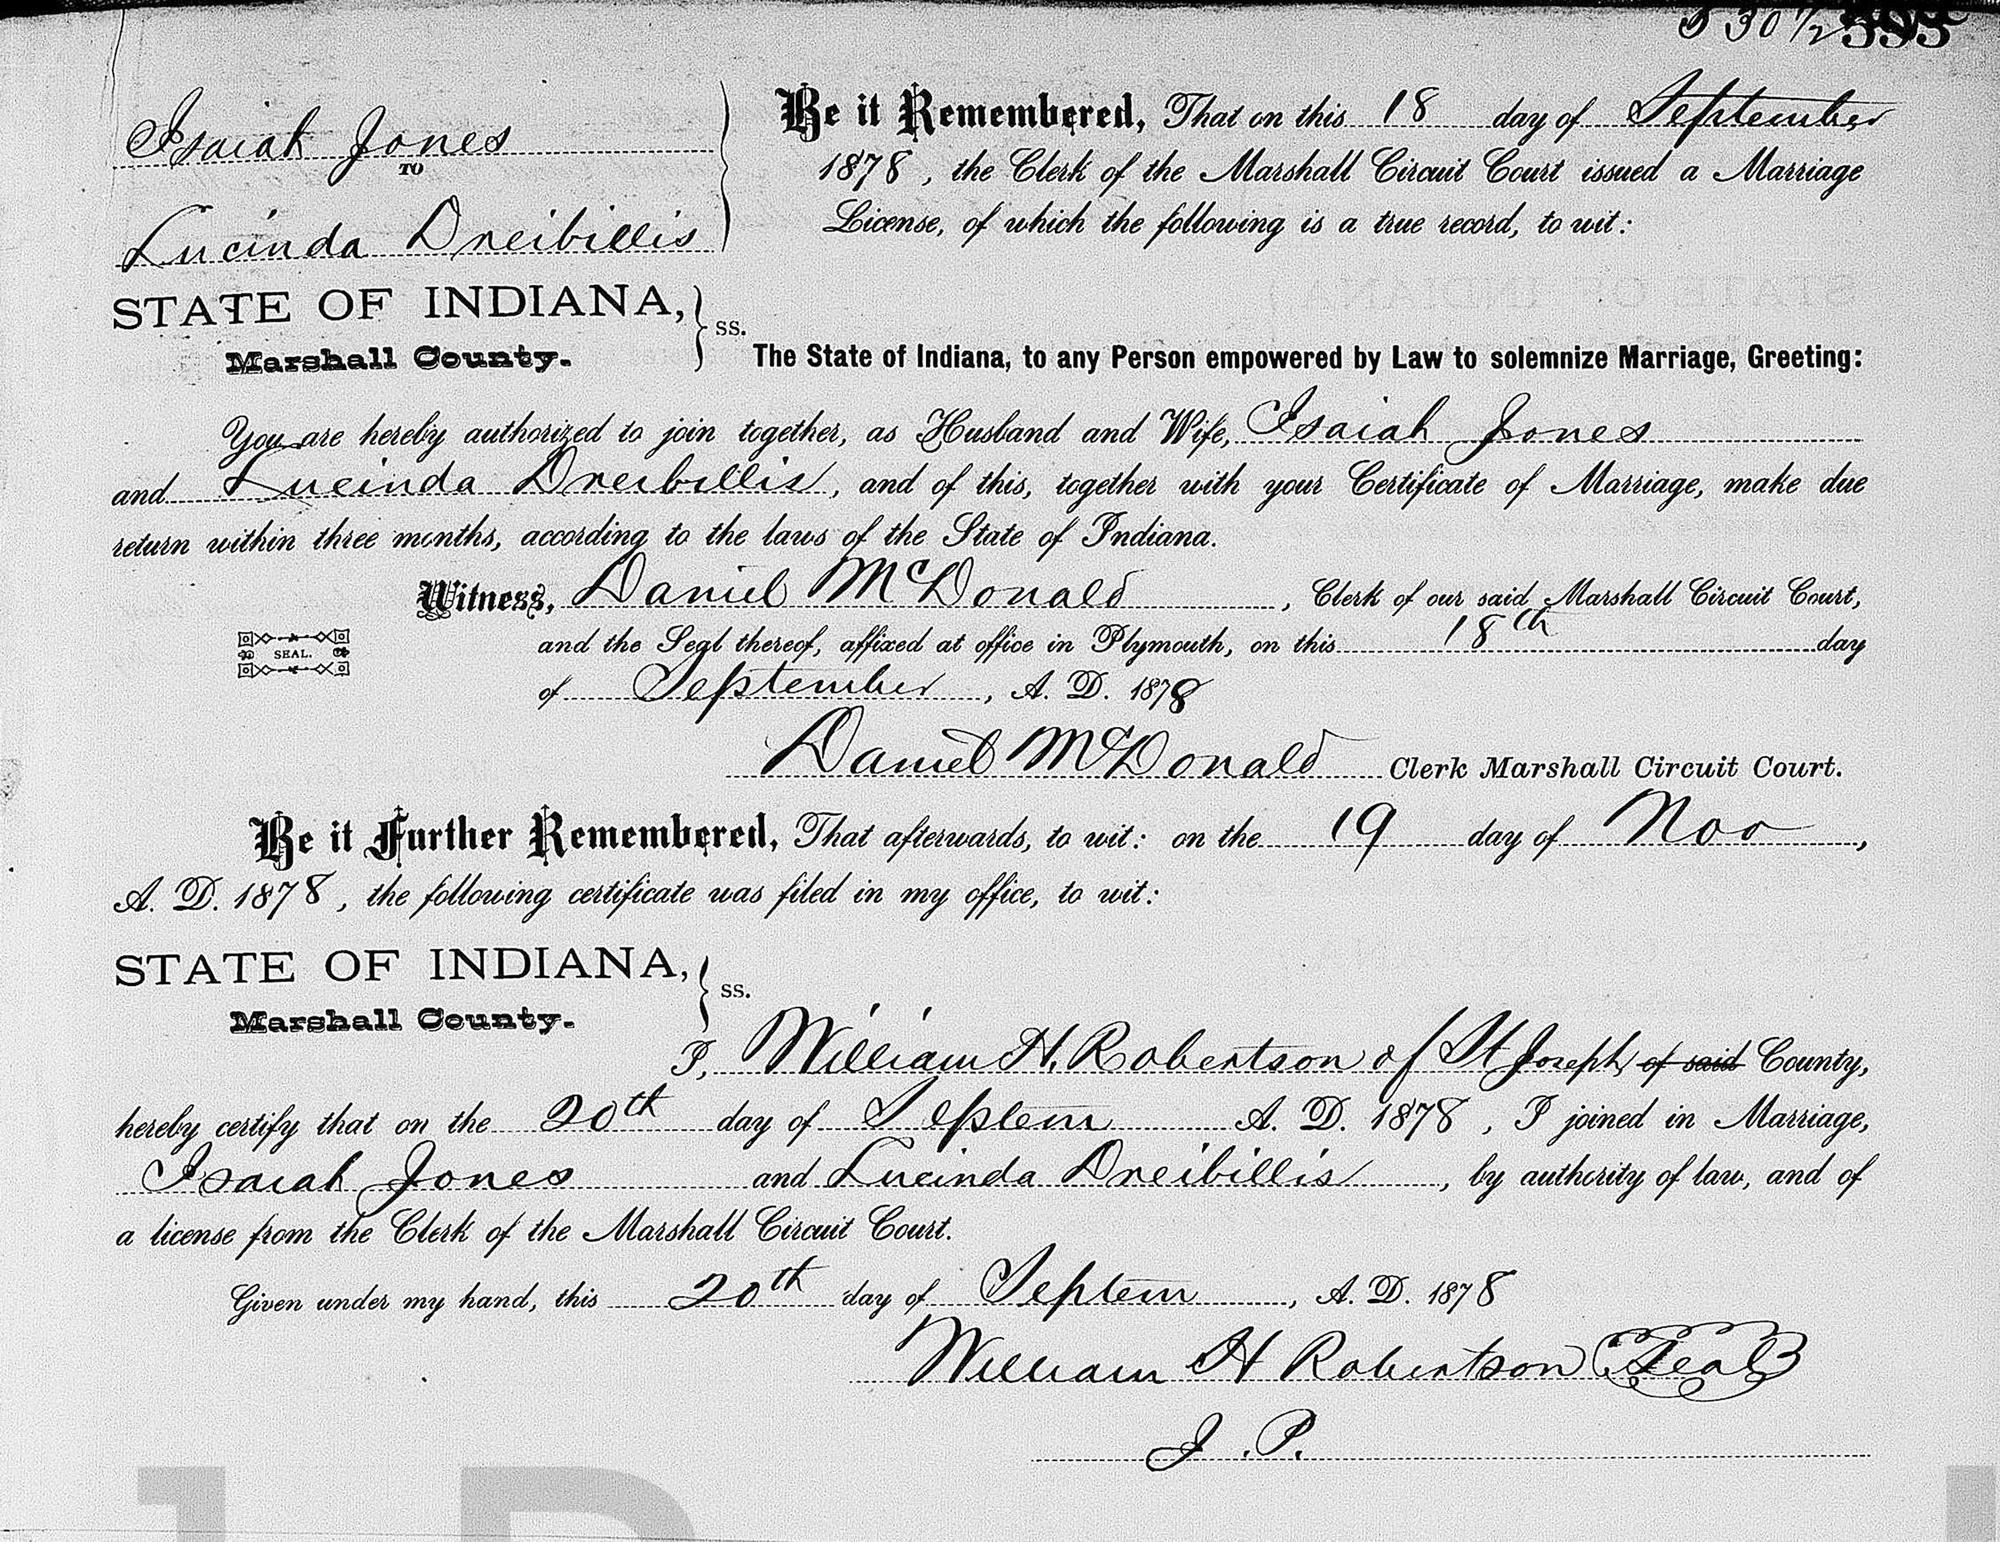 530 1/2
Isaiah Jones
TO
Lucinda Dreibillis
Be it Remembered, That on this 18 day of September
1878, the Clerk of the Marshall Circuit Court issued a Marriage
License, of which the following is a true record, to wit:
STATE OF INDIANA,
Marshall County.
ss.
The State of Indiana, to any Person empowered by Law to solemnize Marriage, Greeting:
You are hereby authorized to join together, as Husband and Wife, Isaiah Jones
and Lucinda Dreibillis, and of this, together with your Certificate of Marriage, make due
return within three months, according to the laws of the State of Indiana.
Witness, Daniel McDonald, Clerk of our said Marshall Circuit Court,
SEAL.
and the Seal thereof, affixed at office in Plymouth, on this 18th day
of September, A. D. 1878
Daniel McDonald Clerk Marshall Circuit Court.
Be it Further Remembered, That afterwards, to wit: on the 19 day of Nov,
A. D. 1878, the following certificate was filed in my office, to wit:
STATE OF INDIANA,
Marshall County.
ss.
I, William H. Robertson of St Joseph of said County,
hereby certify that on the 20th day of Septem A. D. 1878, I joined in Marriage,
Isaiah Jones and Lucinda Dreibillis, by authority of law, and of
a license from the Clerk of the Marshall Circuit Court.
Given under my hand, this 20th day of Septem, A. D. 1878
William H Robertson Seal
J. P.